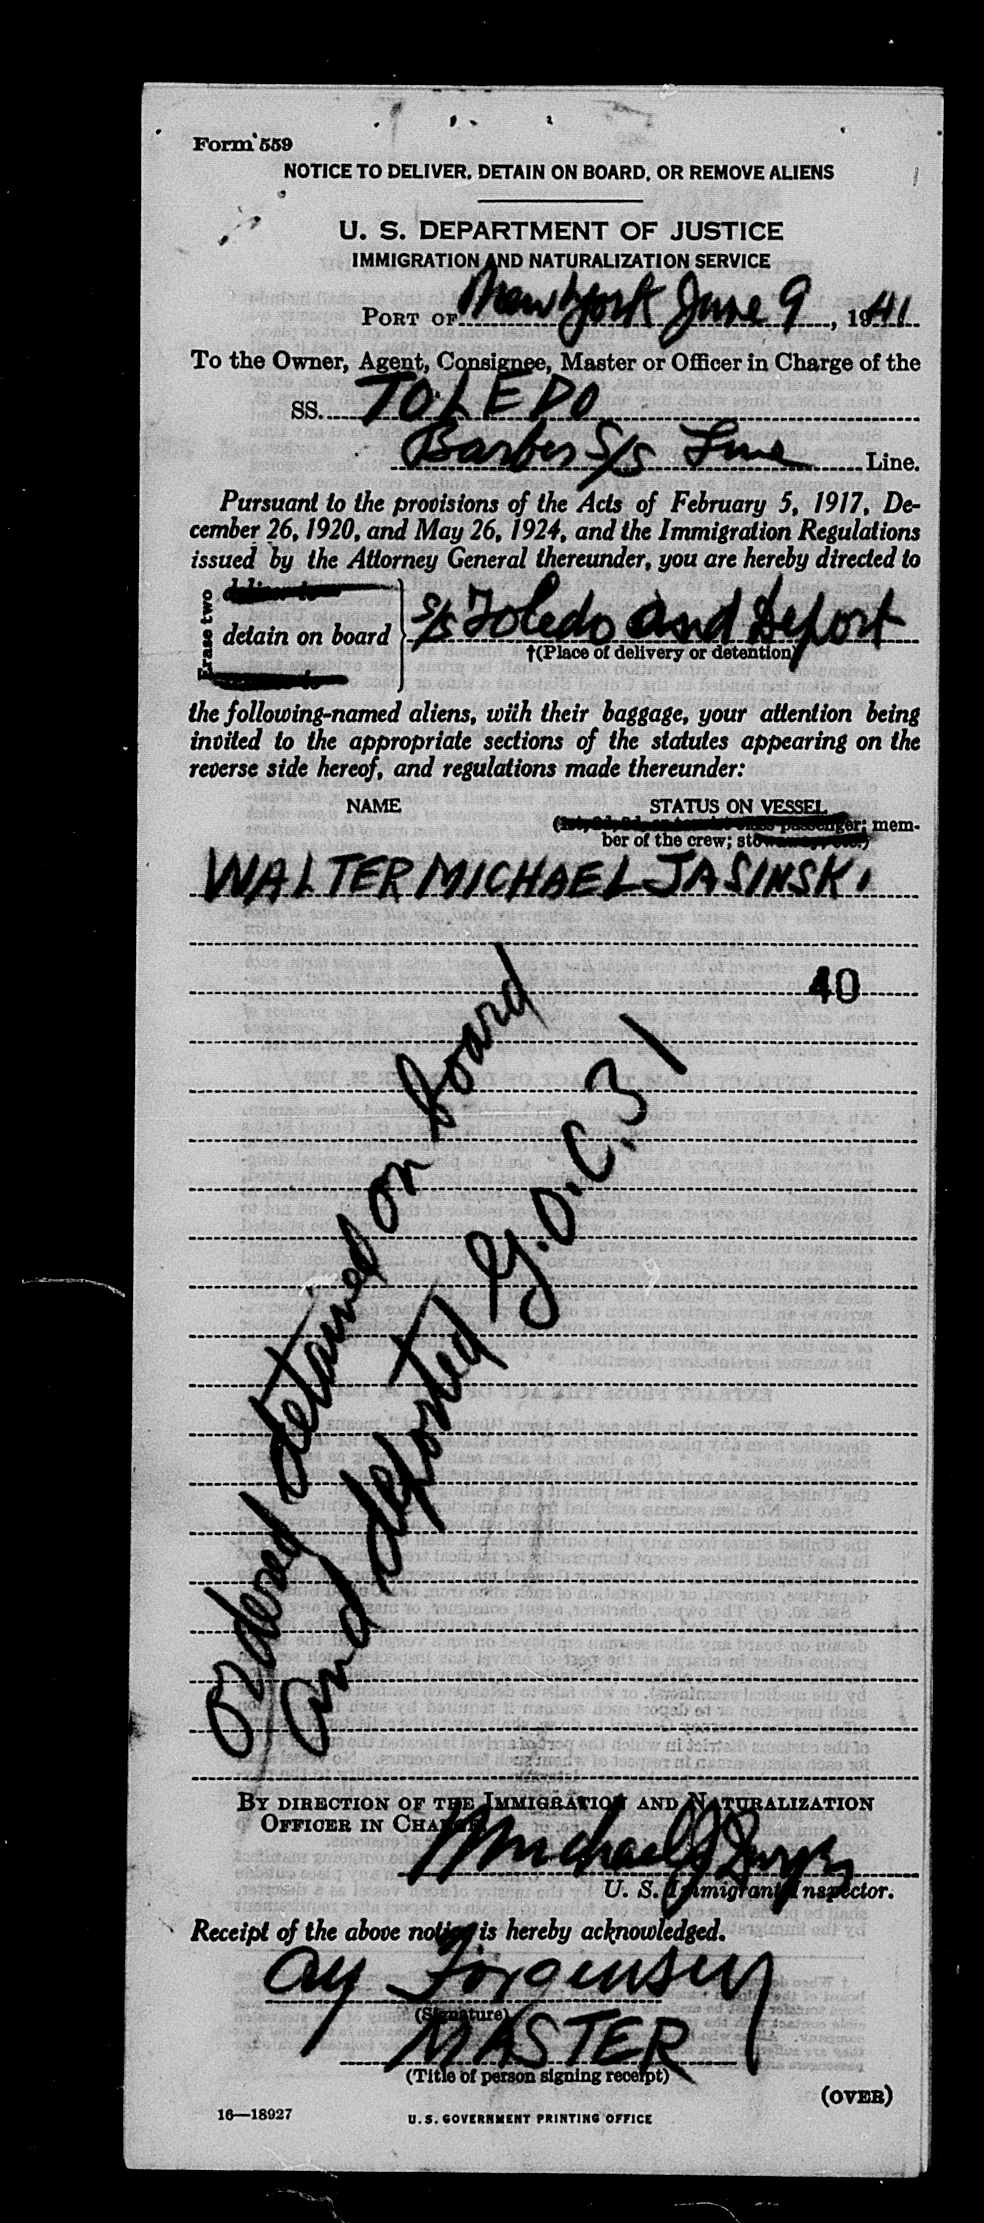 Form 559
NOTICE TO DELIVER, DETAIN ON BOARD, OR REMOVE ALIENS
U. S. DEPARTMENT OF JUSTICE
IMMIGRATION AND NATURALIZATION SERVICE
PORT OF New York June 9, 1941
To the Owner, Agent, Consignee, Master or Officer in Charge of the
SS. TOLEDO
Barber S/S Line Line.
Pursuant to the provisions of the Acts of February 5, 1917, De-
cember 26, 1920, and May 26, 1924, and the Immigration Regulations
issued by the Attorney General thereunder, you are hereby directed to
Erase two
detain on board S/S Toledo and Deport
†(Place of delivery or detention)
the following-named aliens, with their baggage, your attention being
invited to the appropriate sections of the statutes appearing on the
reverse side hereof, and regulations made thereunder:
NAME STATUS ON VESSEL
passenger; mem-
ber of the crew;
WALTER MICHAEL JASINSKI
40
Ordered detained on board
and deported G.O.C. 31
BY DIRECTION OF THE IMMIGRATION AND NATURALIZATION
OFFICER IN CHARGE,
Michael J Dwyer
U. S. Immigrant Inspector.
Receipt of the above notice is hereby acknowledged.
Jorgensen
(Signature)
MASTER
(Title of person signing receipt)
(OVER)
16—18927 U. S. GOVERNMENT PRINTING OFFICE